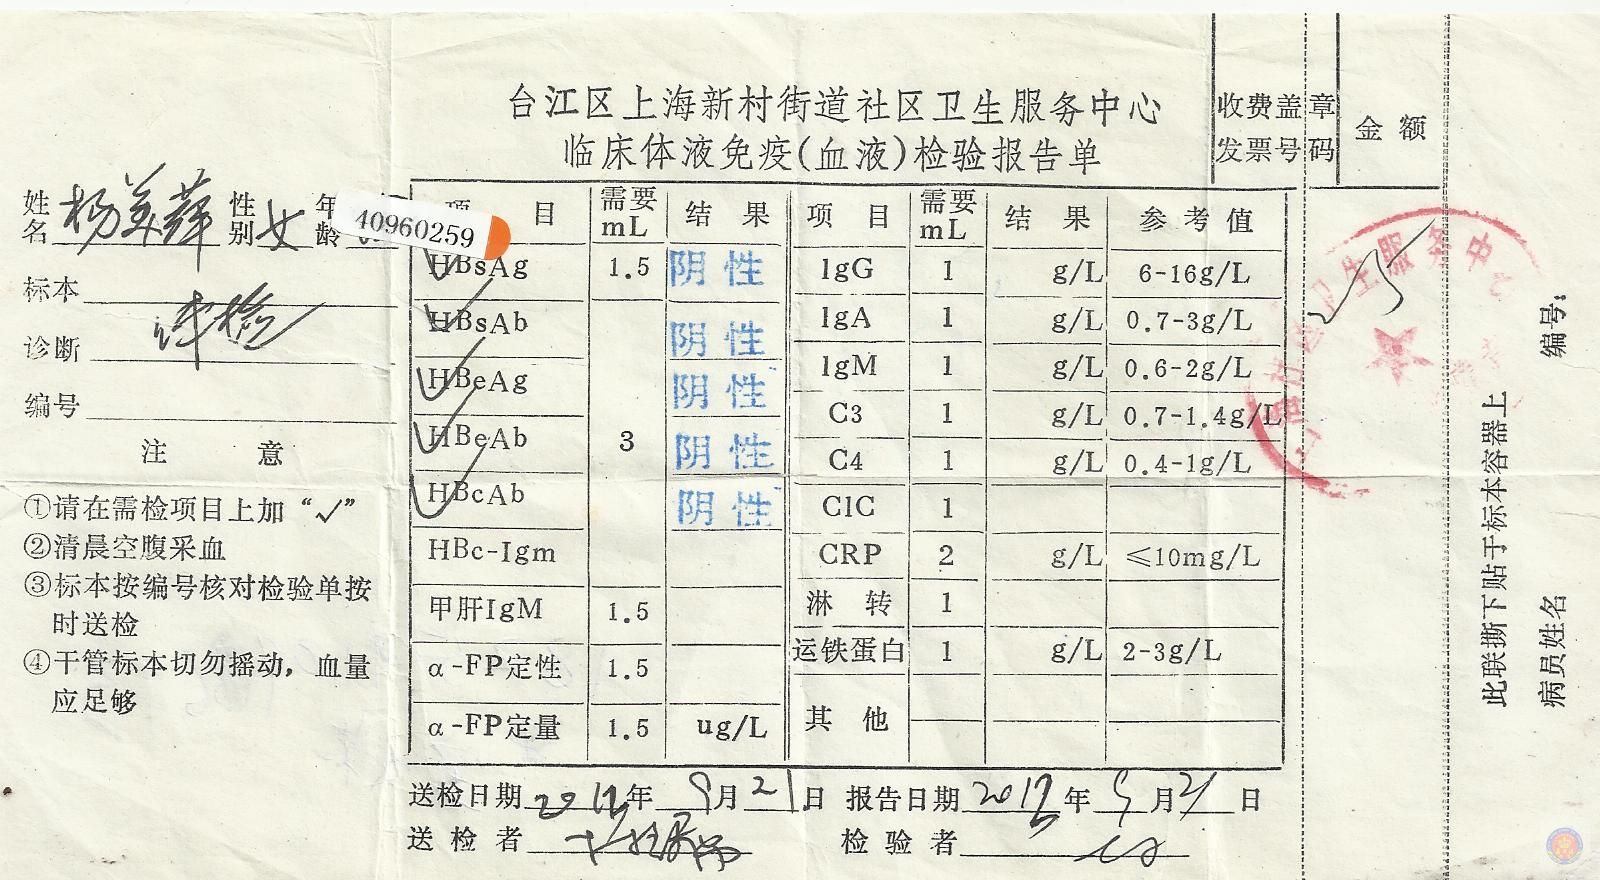 台江区上海新村街道社区卫生服务中心
临床体液免疫(血液)检验报告单
收费盖章
发票号码
金额
姓名 杨美萍 性别 女 年龄
40960259
标本
诊断 体检
编号
注 意
①请在需检项目上加“✓”
②清晨空腹采血
③标本按编号核对检验单按
时送检
④干管标本切勿摇动，血量
应足够
项 目 需要mL 结 果 项 目 需要mL 结 果 参考值
HBsAg 1.5 阴性 IgG 1 g/L 6-16g/L
HBsAb 阴性 IgA 1 g/L 0.7-3g/L
HBeAg 阴性 IgM 1 g/L 0.6-2g/L
HBeAb 3 阴性 C3 1 g/L 0.7-1.4g/L
HBcAb 阴性 C4 1 g/L 0.4-1g/L
HBc-Igm ClC 1
CRP 2 g/L ≤10mg/L
甲肝IgM 1.5 淋 转 1
α-FP定性 1.5 运铁蛋白 1 g/L 2-3g/L
α-FP定量 1.5 ug/L 其 他
送检日期 年 9月21日 报告日期 年 9月21日
送检者 检验者
卫生服务中心
此联撕下贴于标本容器上
编号：
病员姓名